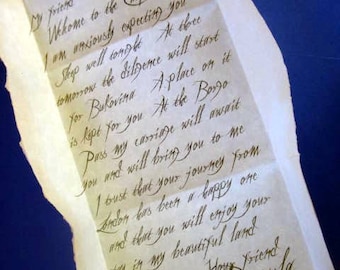 My Friend
Welcome to the
I am anxiously expecting you
Sleep well tonight At three
tomorrow the diligence will start
for Bukovina A place on it
is kept for you At the Borgo
Pass my carriage will await
you and will bring you to me
I trust that your journey from
London has been a happy one
and that you will enjoy your
in my beautiful land
Your friend